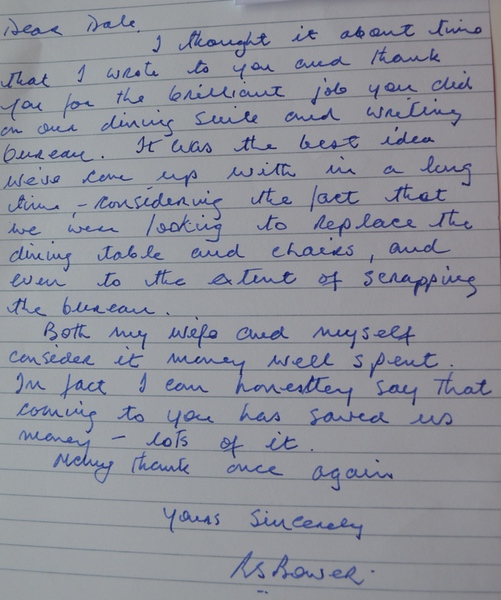 Dear Dale.
I thought it about time
that I wrote to you and thank
you for the brilliant job you did
on our dining suite and writing
bureau. It was the best idea
we've come up with in a long
time, - considering the fact that
we were looking to replace the
dining table and chairs, and
even to the extent of scrapping
the bureau.
Both my wife and myself
consider it money well spent.
In fact I can honestley say that
coming to you has saved us
money - lots of it.
Many thanks once again
Yours Sincerely